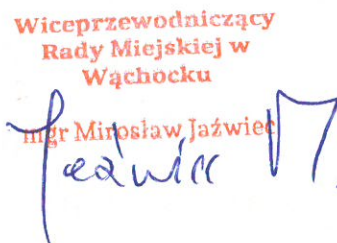 Wiceprzewodniczący
Rady Miejskiej w
Wąchocku
mgr Mirosław Jaźwiec
Jaźwiec M.